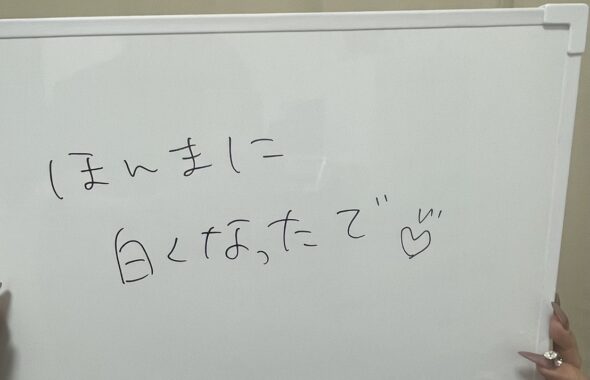 ほんまに
白くなったで♡